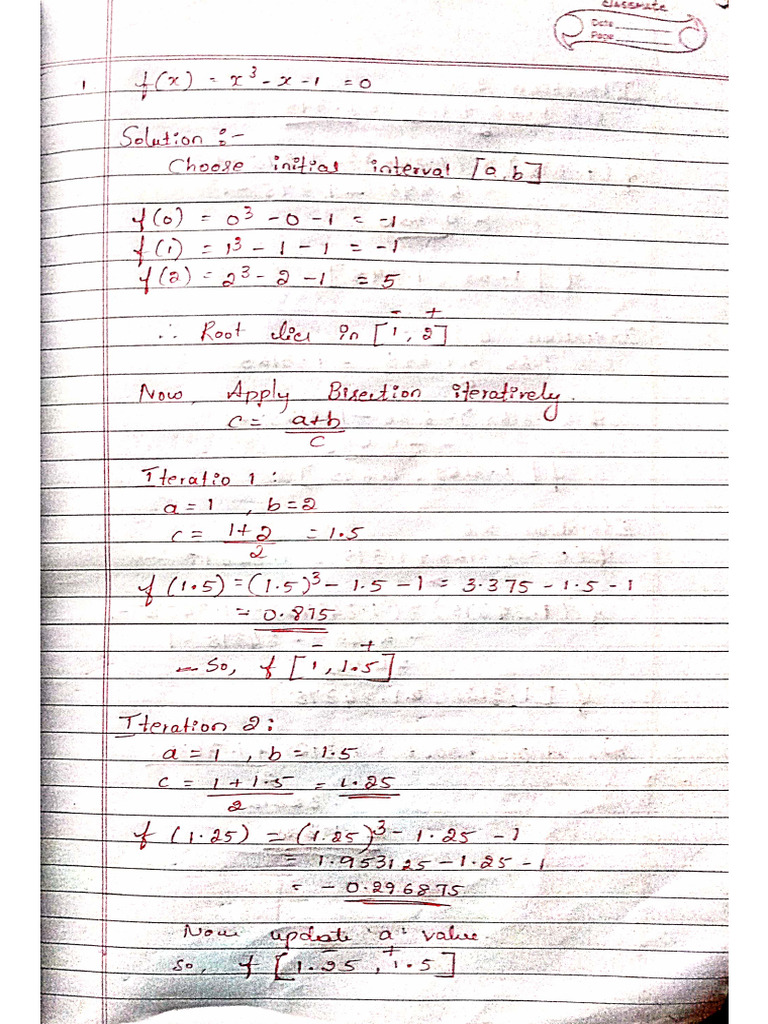 classmate
Date
Page
1 f(x) = x³ - x - 1 = 0
Solution :-
Choose initial interval [a, b]
f(0) = 0³ - 0 - 1 = -1
f(1) = 1³ - 1 - 1 = -1
f(2) = 2³ - 2 - 1 = 5
- +
∴ Root lies in [1, 2]
Now, Apply Bisection iteratively.
c = a+b
c
Iteratio 1 :
a = 1 , b = 2
c = 1+2 = 1.5
2
f(1.5) = (1.5)³ - 1.5 - 1 = 3.375 - 1.5 - 1
= 0.875
- +
- So, f [1, 1.5]
Iteration 2:
a = 1 , b = 1.5
c = 1+1.5 = 1.25
2
f (1.25) = (1.25)³ - 1.25 - 1
= 1.953125 - 1.25 - 1
= - 0.296875
Now update 'a' value.
- +
So, f [1.25, 1.5]